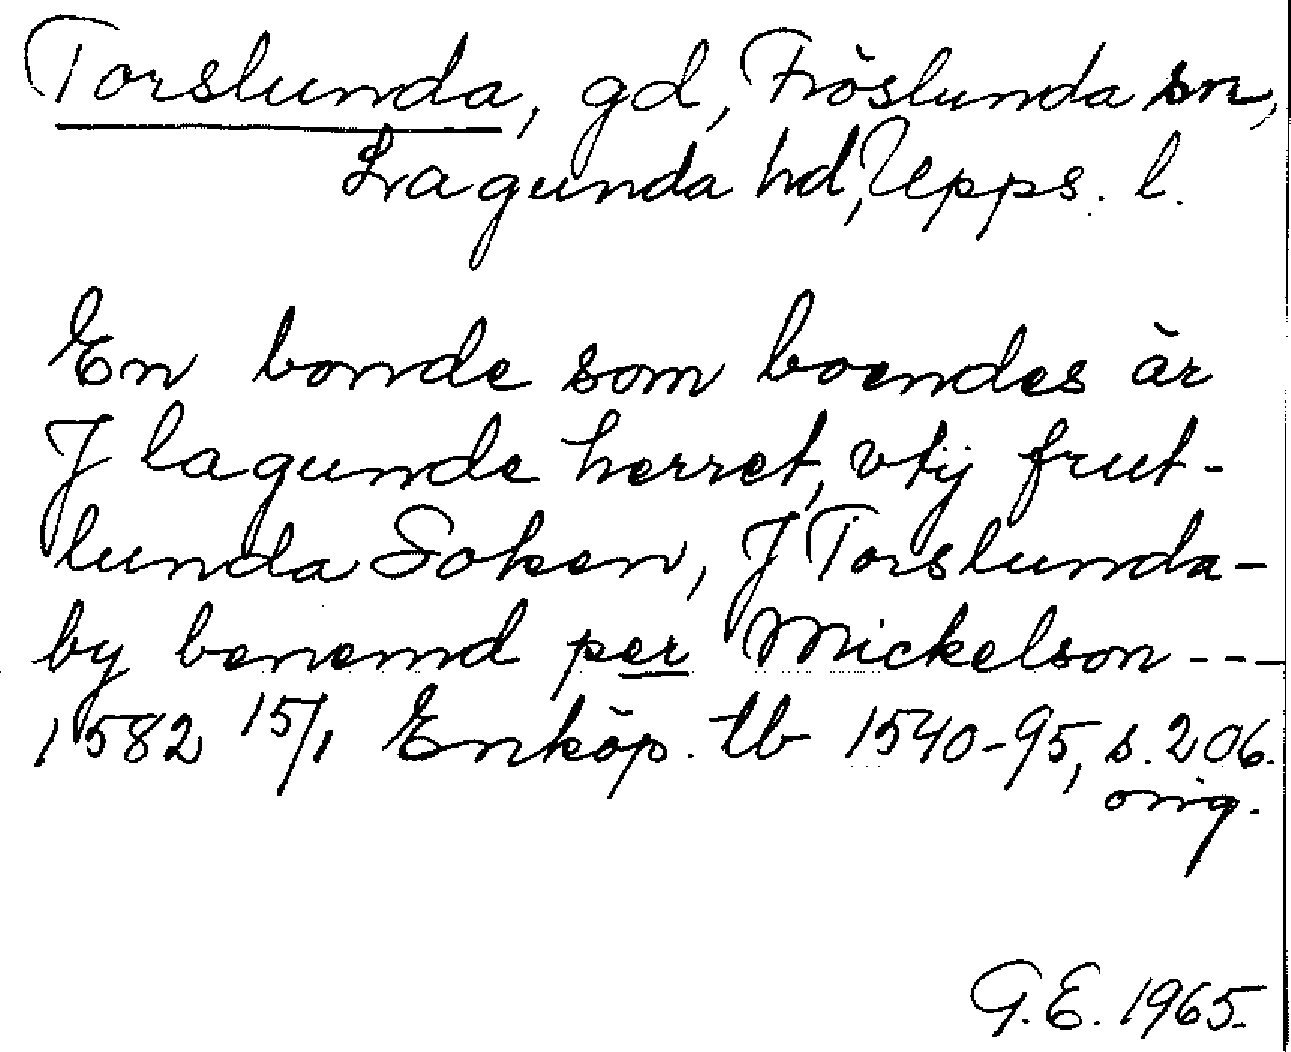 Torslunda, gd, Fröslunda sn,
Lagunda hd, Upps. l.
En bonde som boendes är
J lagunde herret, vtij frut-
lunda Soken, J Torslunda-
by benemd per Mickelson ---
1582 15/1 Enköp. tb 1540-95, s. 206.
orig.
G.E. 1965.